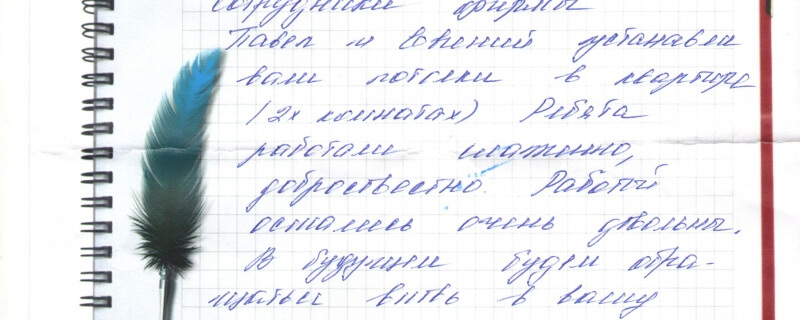 сотрудники фирмы
Павел и Евгений устанавли
вали потолки в квартире
(2х комнатах) Ребята
работали слаженно,
добросовестно. Работой
остались очень довольны.
В будущем будем обра-
щаться в вашу